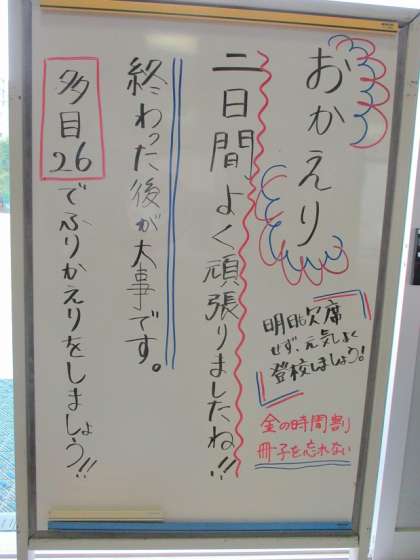 おかえり
二日間よく頑張りましたね!!
終わった後が大事です。
多目26でふりかえりをしましょう!!
明日も欠席
せず、元気よく
登校しましょう!
金の時周割
冊子を忘れない